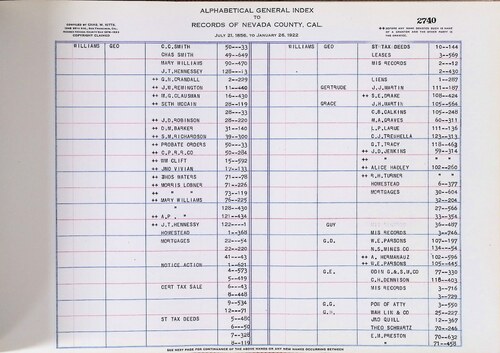 ALPHABETICAL GENERAL INDEX
TO
RECORDS OF NEVADA COUNTY, CAL.
JULY 21, 1856, TO JANUARY 26, 1922
2740
COPYRIGHT CLAIMED
WILLIAMS GEO C.C.SMITH 50---33
CHAS SMITH 49--649
MARY WILLIAMS 90--470
J.T.HENNESSY 128---13
++ G.N.CRANDALL 2--229
++ J.W.REMINGTON 11--440
++ M.G.CLAUSMAN 16--430
++ SETH MCCAIN 28--119
28---33
++ J.D.ROBINSON 28--220
++ D.M.BARKER 31--140
++ S.M.RICHARDSON 39--300
++ PROBATE ORDERS 50---33
++ C.P.R.R.CO 50--284
++ WM CLIFT 15--592
++ JNO VIVIAN 12--133
++ RHOS WATERS 71---78
++ MORRIS LOBNER 71--226
++ " " 73--119
++ MARY WILLIAMS 76--225
" 128--430
++ A.P. " 121--434
++ J.T.HENNESSY 122----1
HOMESTEAD 1--368
MORTGAGES 22---54
22--220
41---43
NOTICE ACTION 1--621
4--573
5--419
CERT TAX SALE 6---43
8--448
9--534
12---71
ST TAX DEEDS 5--480
6---50
7--328
8--119
WILLIAMS GEO ST TAX DEEDS 10--144
LEASES 3--569
MIS RECORDS 2---12
2--430
LIENS 1--287
GERTRUDE J.J.MARTIN 111--187
++ S.E.DRAKE 108--424
GRACE J.H.MARTIN 105--564
C.B.CALKINS 105--248
M.A.GRAVES 60--311
L.P.LARUE 111--136
C.J.TREGHELLA 123--313
G.T.TRACY 118--463
++ J.D.JENKINS 59--314
++ " " "
++ ALICE HADLEY 102--250
++ R.H.TURNER " "
HOMESTEAD 6--377
MORTGAGES 30--604
32--204
27--566
33--354
GUY 36--487
MIS RECORDS 3--746
G.D. W.E.PARSONS 107--197
N.S.MINES CO 134---54
++ A. HERMANAUZ 102--596
++ W.E.PARSONS 105--445
G.E. ODIN G.&S.M.CO 77--330
C.H.DENNISON 118--403
MIS RECORDS 3--716
3--729
G.G. POW OF ATTY 3--550
G.H. WAH LIN & CO 25--227
JNO QUILL 12--367
THEO SCHWARTZ 70--246
E.M.PRESTON 70--632
" 71--458
SEE NEXT PAGE FOR CONTINUANCE OF THE ABOVE NAMES OR ANY NEW NAMES OCCURRING BETWEEN